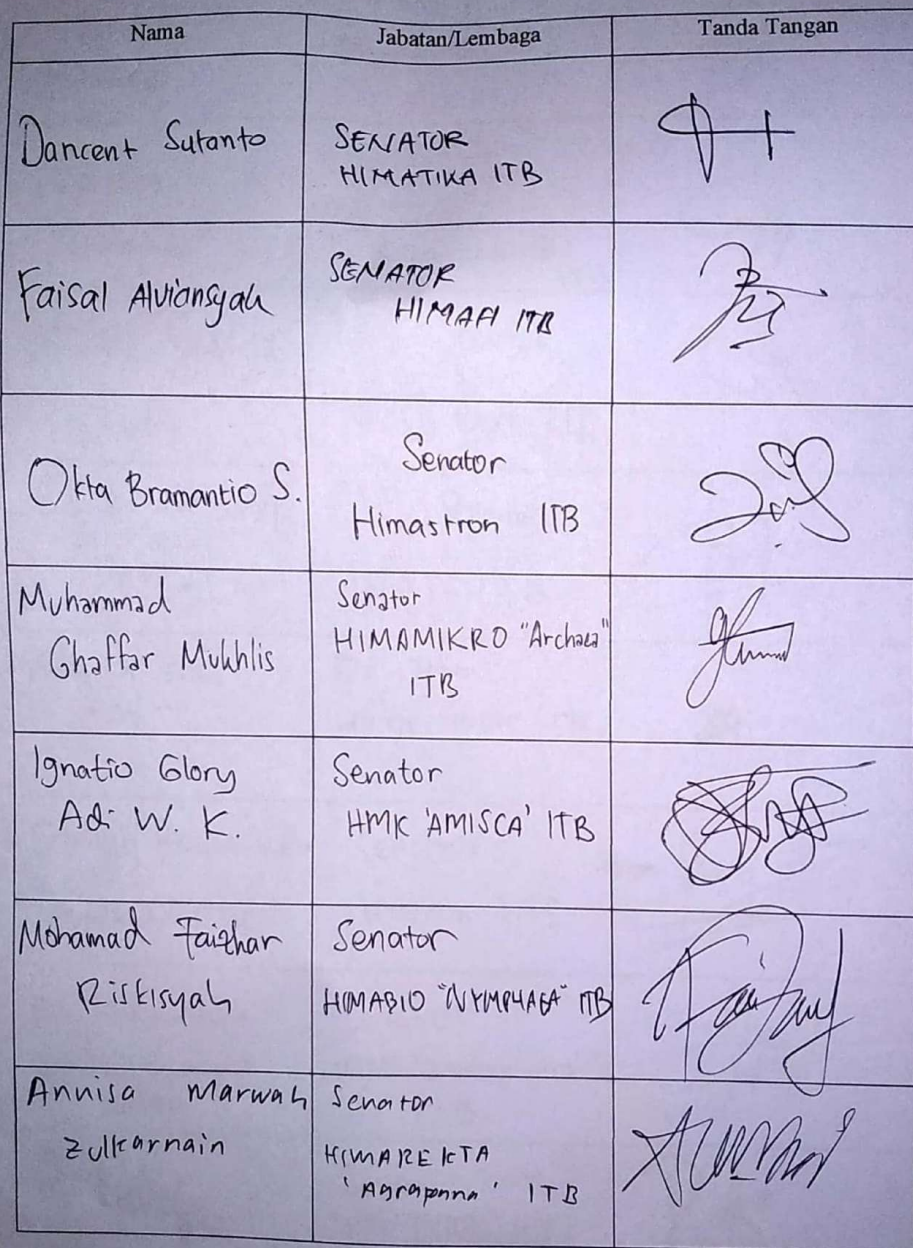 Nama Jabatan/Lembaga Tanda Tangan
Dancent Sutanto
SENATOR
HIMATIKA ITB
Faisal Alviansyah
SENATOR
HIMAFI ITB
Okta Bramantio S.
Senator
Himastron ITB
Muhammad
Ghaffar Mukhlis
Senator
HIMAMIKRO "Archaea"
ITB
Ignatio Glory
Adi W. K.
Senator
HMK 'AMISCA' ITB
Mohamad Faizhar
Riskisyah
Senator
HIMABIO "NYMPHAEA" ITB
Annisa Marwah
Zulkarnain
Senator
HIMAREKTA
'Agrapana' ITB